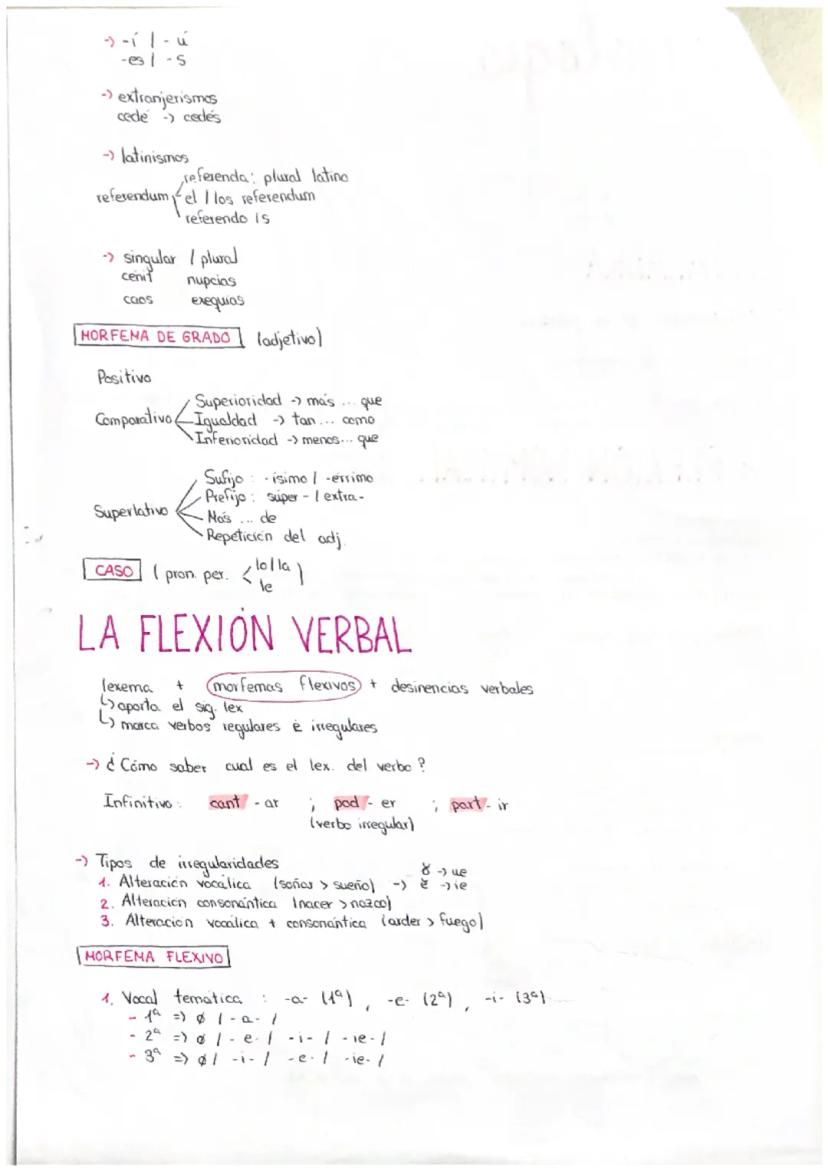 -> -í / -ú
-es / -s
-> extranjerismos
cedé -> cedés
-> latinismos
referenda: plural latino
referendum el / los referendum
referendo /s
-> singular / plural
cenit nupcias
caos exequias
MORFEMA DE GRADO (adjetivo)
Positivo
Superioridad -> más ... que
Comparativo Igualdad -> tan ... como
Inferioridad -> menos... que
Sufijo: -ísimo / -érrimo
Prefijo: súper- / extra-
Superlativo Más ... de
Repetición del adj.
CASO ( pron. per. < lo/la
le )
LA FLEXIÓN VERBAL
lexema + morfemas flexivos + desinencias verbales
↳ aporta el sig. lex
↳ marca verbos regulares e irregulares
-> ¿Cómo saber cual es el lex. del verbo?
Infinitivo: cant - ar ; pod - er ; part - ir
(verbo irregular)
-> Tipos de irregularidades
ŏ -> ue
1. Alteración vocálica (soñar > sueño) -> ĕ -> ie
2. Alteración consonántica (nacer > nazco)
3. Alteración vocálica + consonántica (arder > fuego)
MORFEMA FLEXIVO
1. Vocal temática : -a- (1ª) , -e- (2ª) , -i- (3ª)
- 1ª => ø / -a- /
- 2ª => ø / -e- / -i- / -ie- /
- 3ª => ø / -i- / -e- / -ie- /